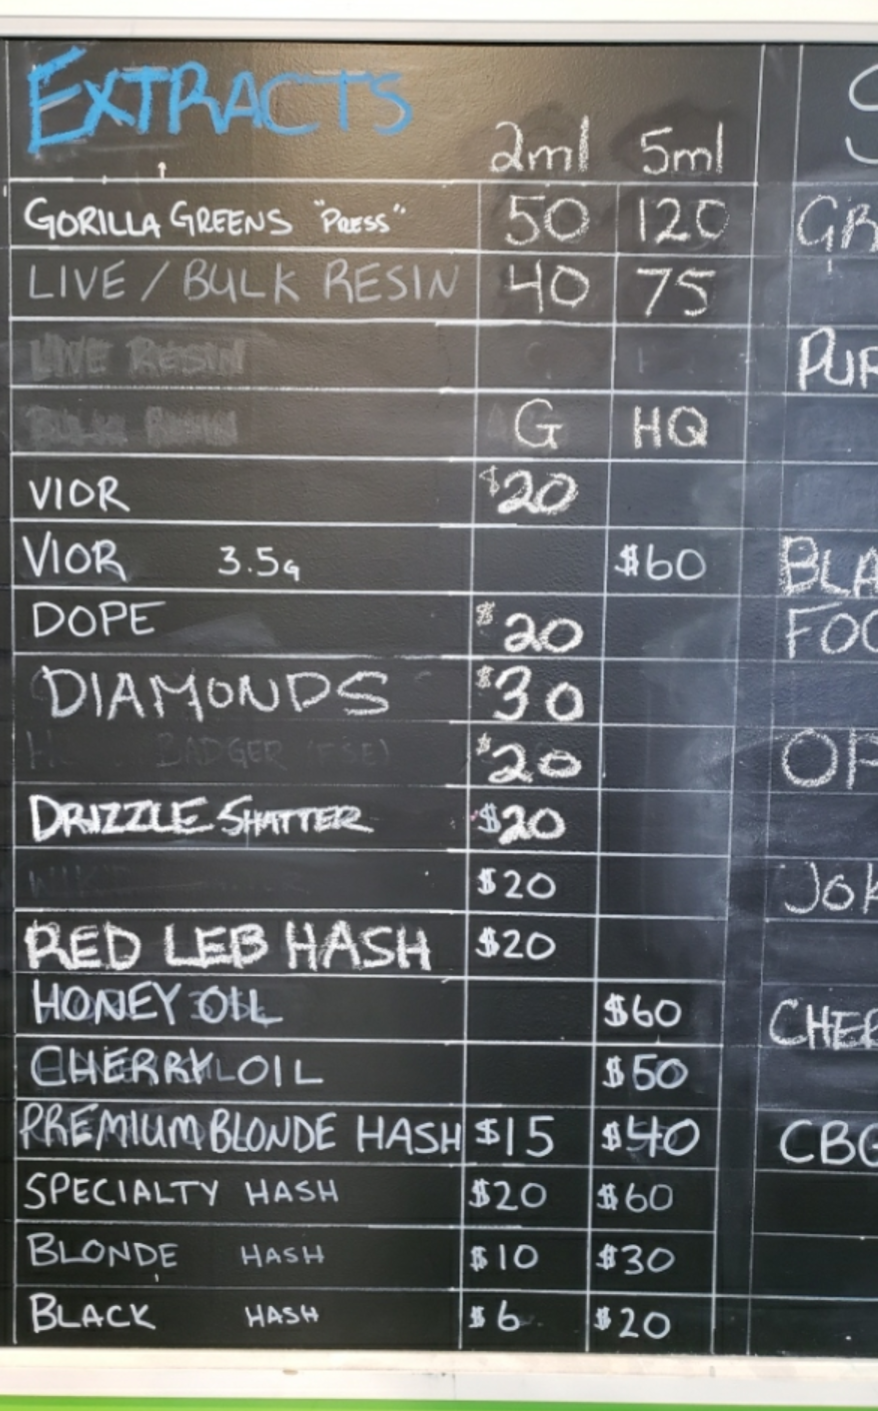 EXTRACTS
2ml 5ml
GORILLA GREENS "PRESS" 50 120
LIVE / BULK RESIN 40 75
LIVE RESIN
BULK RESIN G HQ
VIOR $20
VIOR 3.5g $60
DOPE $20
DIAMONDS $30
BADGER $20
DRIZZLE SHATTER $20
$20
RED LEB HASH $20
HONEY OIL $60
CHERRY OIL $50
PREMIUM BLONDE HASH $15 $40
SPECIALTY HASH $20 $60
BLONDE HASH $10 $30
BLACK HASH $6 $20
GR
PUR
BLA
FOO
OP
JOK
CHER
CBG